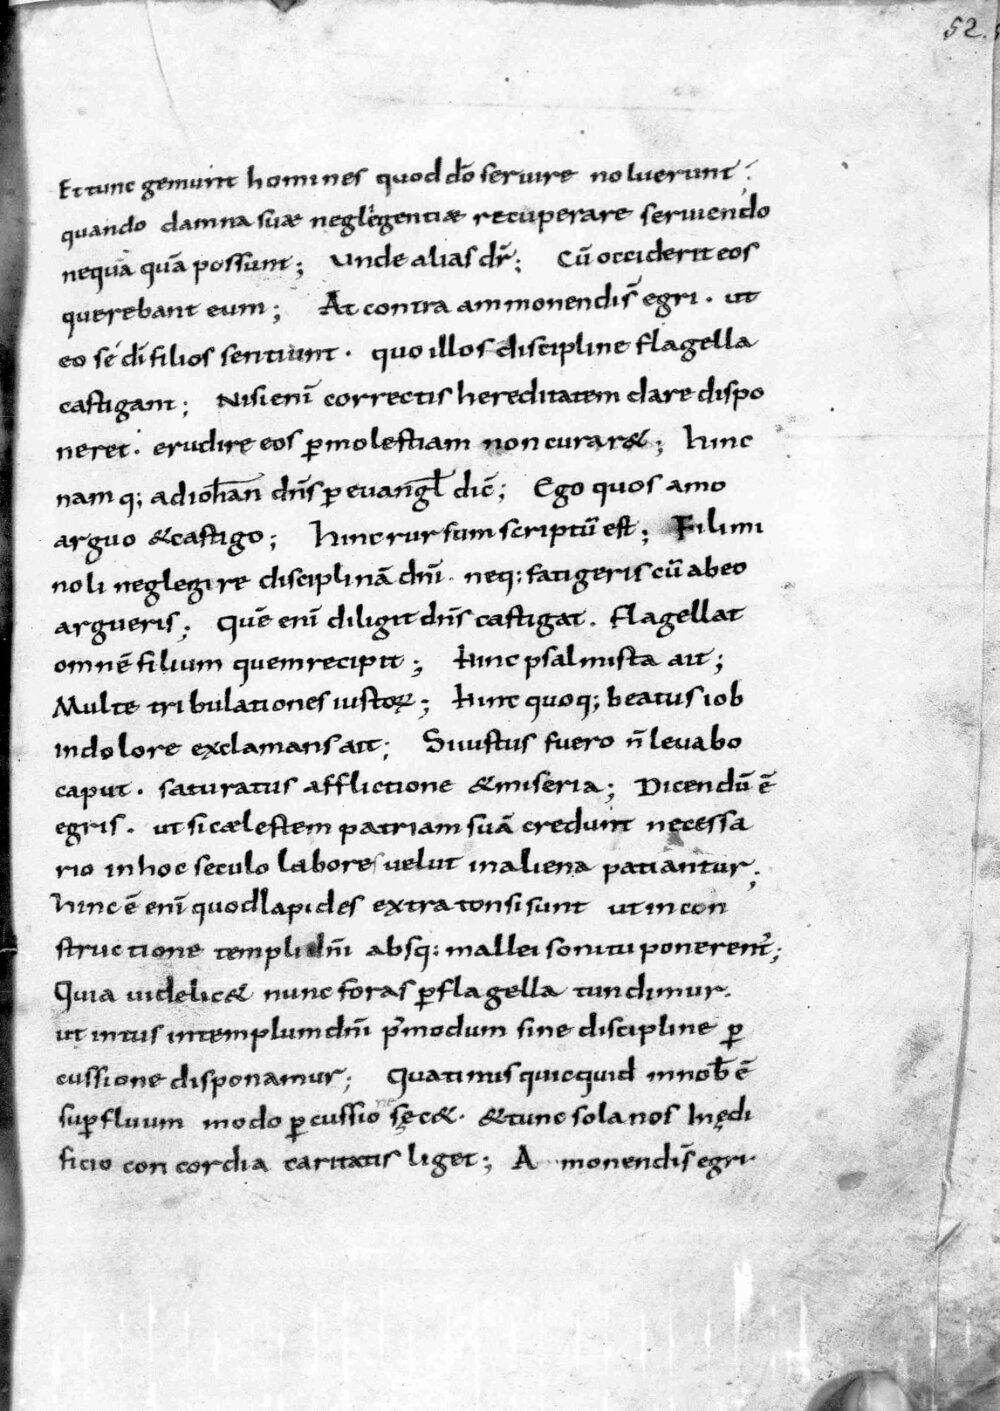 52.
Et tunc gemunt homines quod dō seruire noluerunt;
quando damna suæ neglegentiæ recuperare seruiendo
nequa quā possunt; Unde alias dr̄; Cū occiderit eos
querebant eum; At contra ammonendi s̄ egri. ut
eo sé dī filios sentiunt. quo illos discipline flagella
castigant; Nisi enī correctis hereditatem dare dispo
neret. erudire eos ꝑ molestiam non curar&; Hinc
nam q; ad ioh̄an dn̄s ꝑ evangł dic̄; Ego quos amo
arguo &castigo; Hinc rursum scriptū est; Fili mi
noli neglegire disciplinā dn̄i. neq; fatigeris cū ab eo
argueris; Quē enī diligit dn̄s castigat. flagellat
omnē filium quem recipit; Hinc psalmista ait;
Multe tribulationes iustoꝝ; Hinc quoq; beatus iob
in dolore exclamans ait; Si iustus fuero n̄ levabo
caput. saturatus afflictione &miseria; Dicendū ē
egris. ut si cælestem patriam suā credunt necessa
rio in hoc seculo labores velut in aliena patiantur;
Hinc ē enī quod lapides extra tonsi sunt ut in con
structione templi dn̄i absq; mallei sonitu ponerent̄;
Quia uidelic& nunc foras ꝑ flagella tundimur.
ut intus in templum dn̄i p̄modum sine discipline ꝑ
cussione disponamur; Quatinus quicquid in nob̄ ē
suꝑfluum modo ꝑcussione sęc&. &tunc sola nos In ędi
ficio concordia caritatis liget; A monendi s̄ egri.